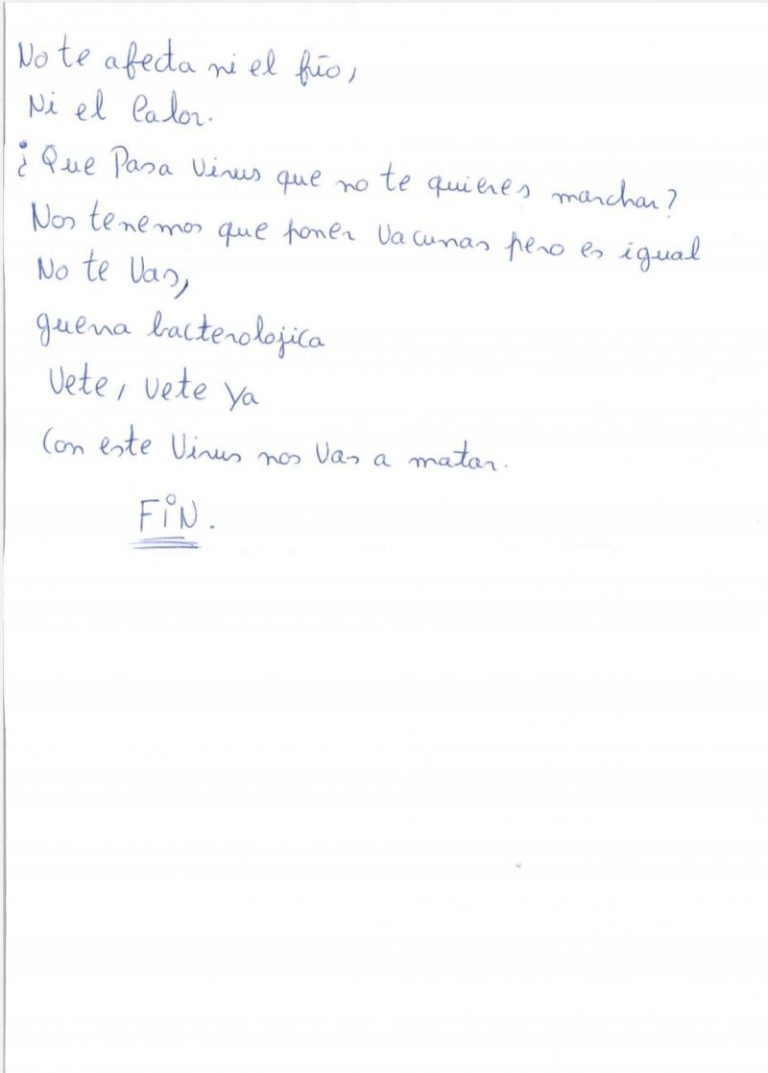 No te afecta ni el frío,
Ni el Calor.
¿Que Pasa Virus que no te quieres marchar?
Nos tenemos que poner Vacunas pero es igual
No te Vas,
guerra bacterolojica
Vete, vete ya
Con este Virus nos Vas a matar.
FiN.